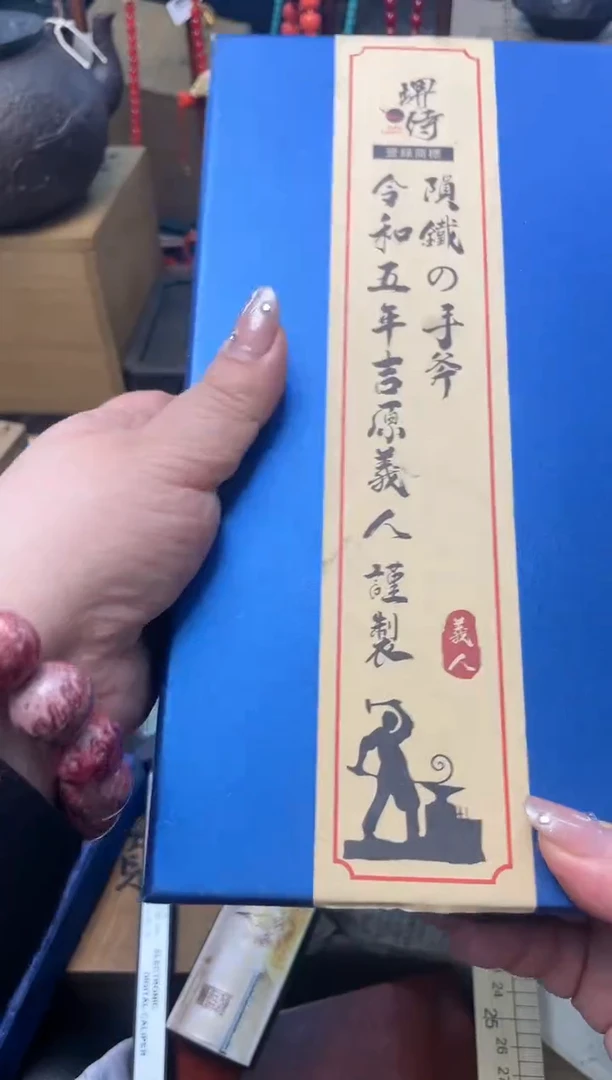 堺侍
登録商標
隕鐵の手斧
令和五年吉原義人 謹製
義人
ELECTRONIC
DIGITAL CALIPER
24
25
26
27